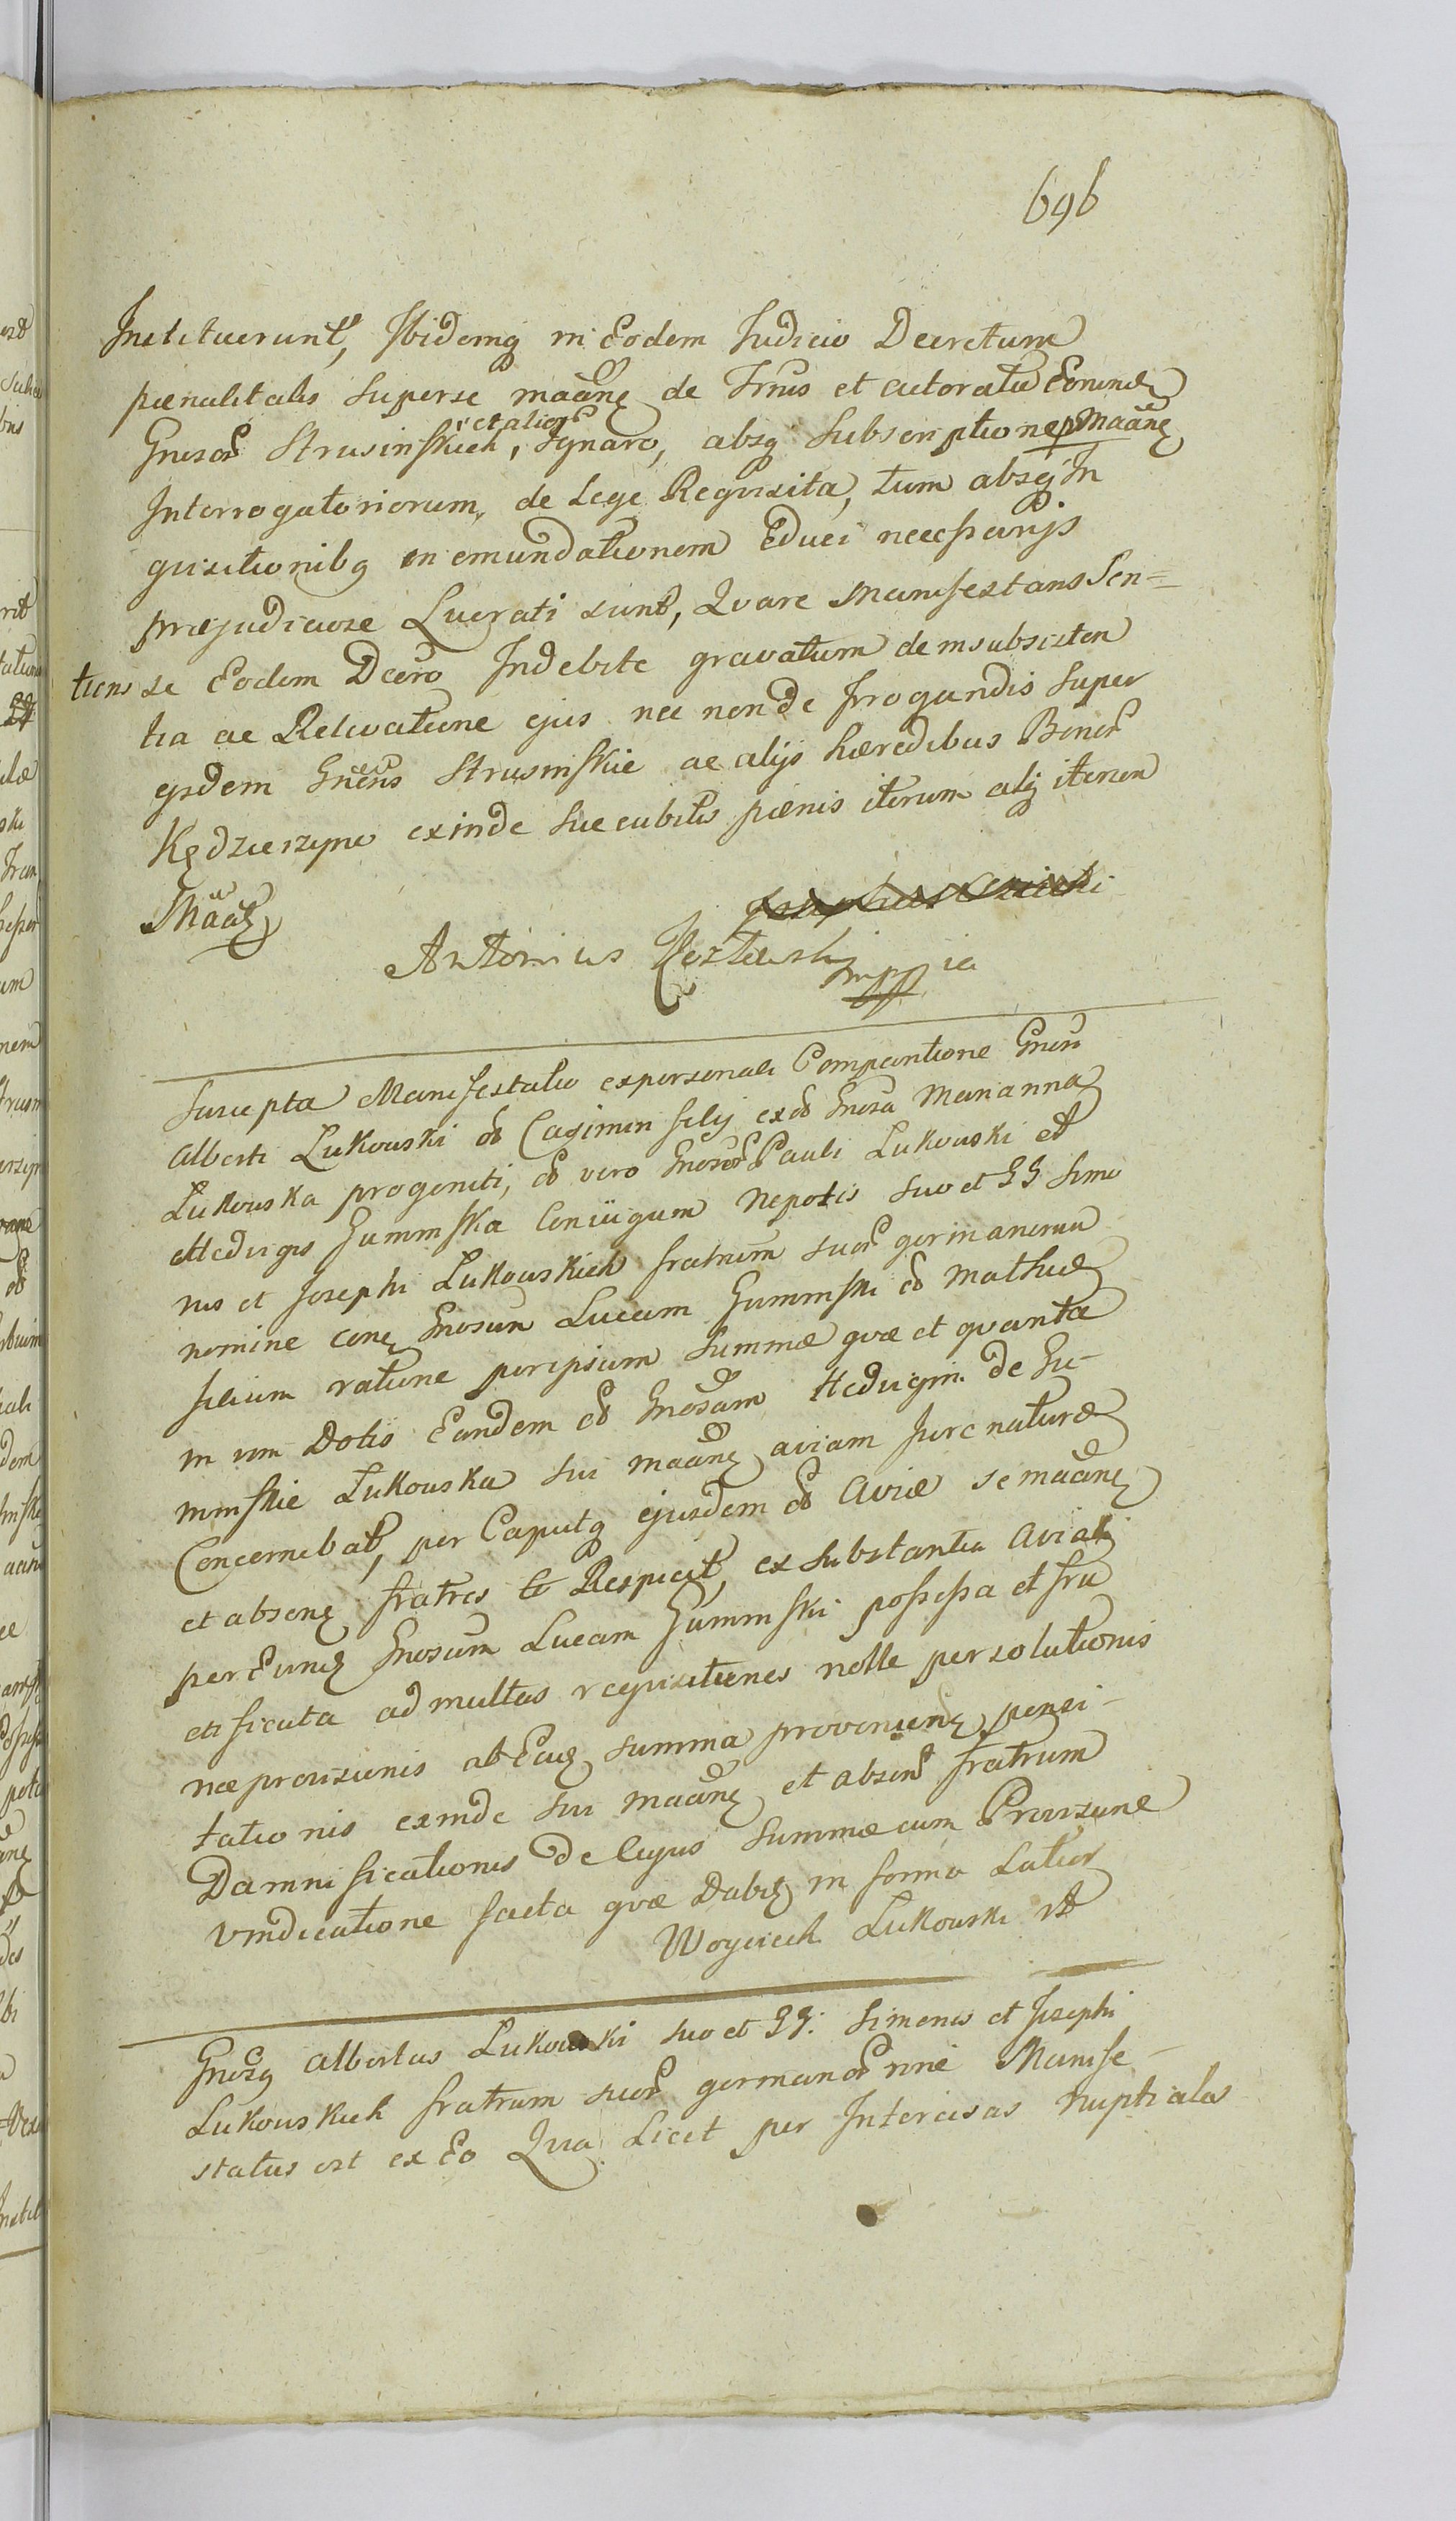 696
Instituerunt, Ibidemq in Eodem Judicio Decretum
pænalitatis superse maãnę de Trnis et actoratu Eorund
Gnrsor Strusinskich, et alior Ignaro, absq subscriptione p Maãnę
Interrogatoriorum, de Lege Requisita, tum absq In
quisitionibq in emundationem Educi necessarijs
præjudiciose Lucrati sunt, Quare Manifestans Sen=
tiens se Eodem Dcero Indebite gravatum de insubsisten
tia ac Relevatione ejus nec non de Irrogandis super
ejsdem Gnrsis Strusinskie ac alijs hæredibus Bonor
Kędzierzyno exinde succubitis pænis iterum atq iterum
Maãtʒ
Antonius mppia
Suscepta Manifestatio expersonali Comparitione Gnrsi
Alberti Lukowski Casimiri filij ex Gnrsa Marianna
Lukowska progeniti, vero Gnrsor Pauli Lukowski et
Hedvigis Guminska Coniugum Nepotis suo et GG Simo
nis et Josephi Lukowskich fratrum suor germanorum
nomine conę Gnrosum Lucam Guminski Mathiæ
filium ratione peripsum Summæ quæ et quanta
in vim Dotis Eandem Gnrosam Hedvigim de Gu-
minskie Lukowska sui maãnę aviam Jure naturæ
Concernebat, per Caputq ejusdem Aviæ se maãnę
et absenę fratres Respicit, ex substantia aviali
per Eundę Gnrosum Lucam Guminski possessa et fru
ctificata ad multas requisitiones nolle persolutionis
næ provisionis ab Eadę summa provenienę, pensi-
tationis exinde sui maãnę et absent fratrum
Damnificationis de Cujus Summæ cum Provisione
vindicatione facta quæ Dabitʒ in forma Latior
Woyciech Lukowski
Gnrsq Albertus Lukowski suo et GG: Simonis et Josephi
Lukowskich fratrum suor germanor nne Manife-
status est ex Eo Quia Licet per Intercisas nuptiales